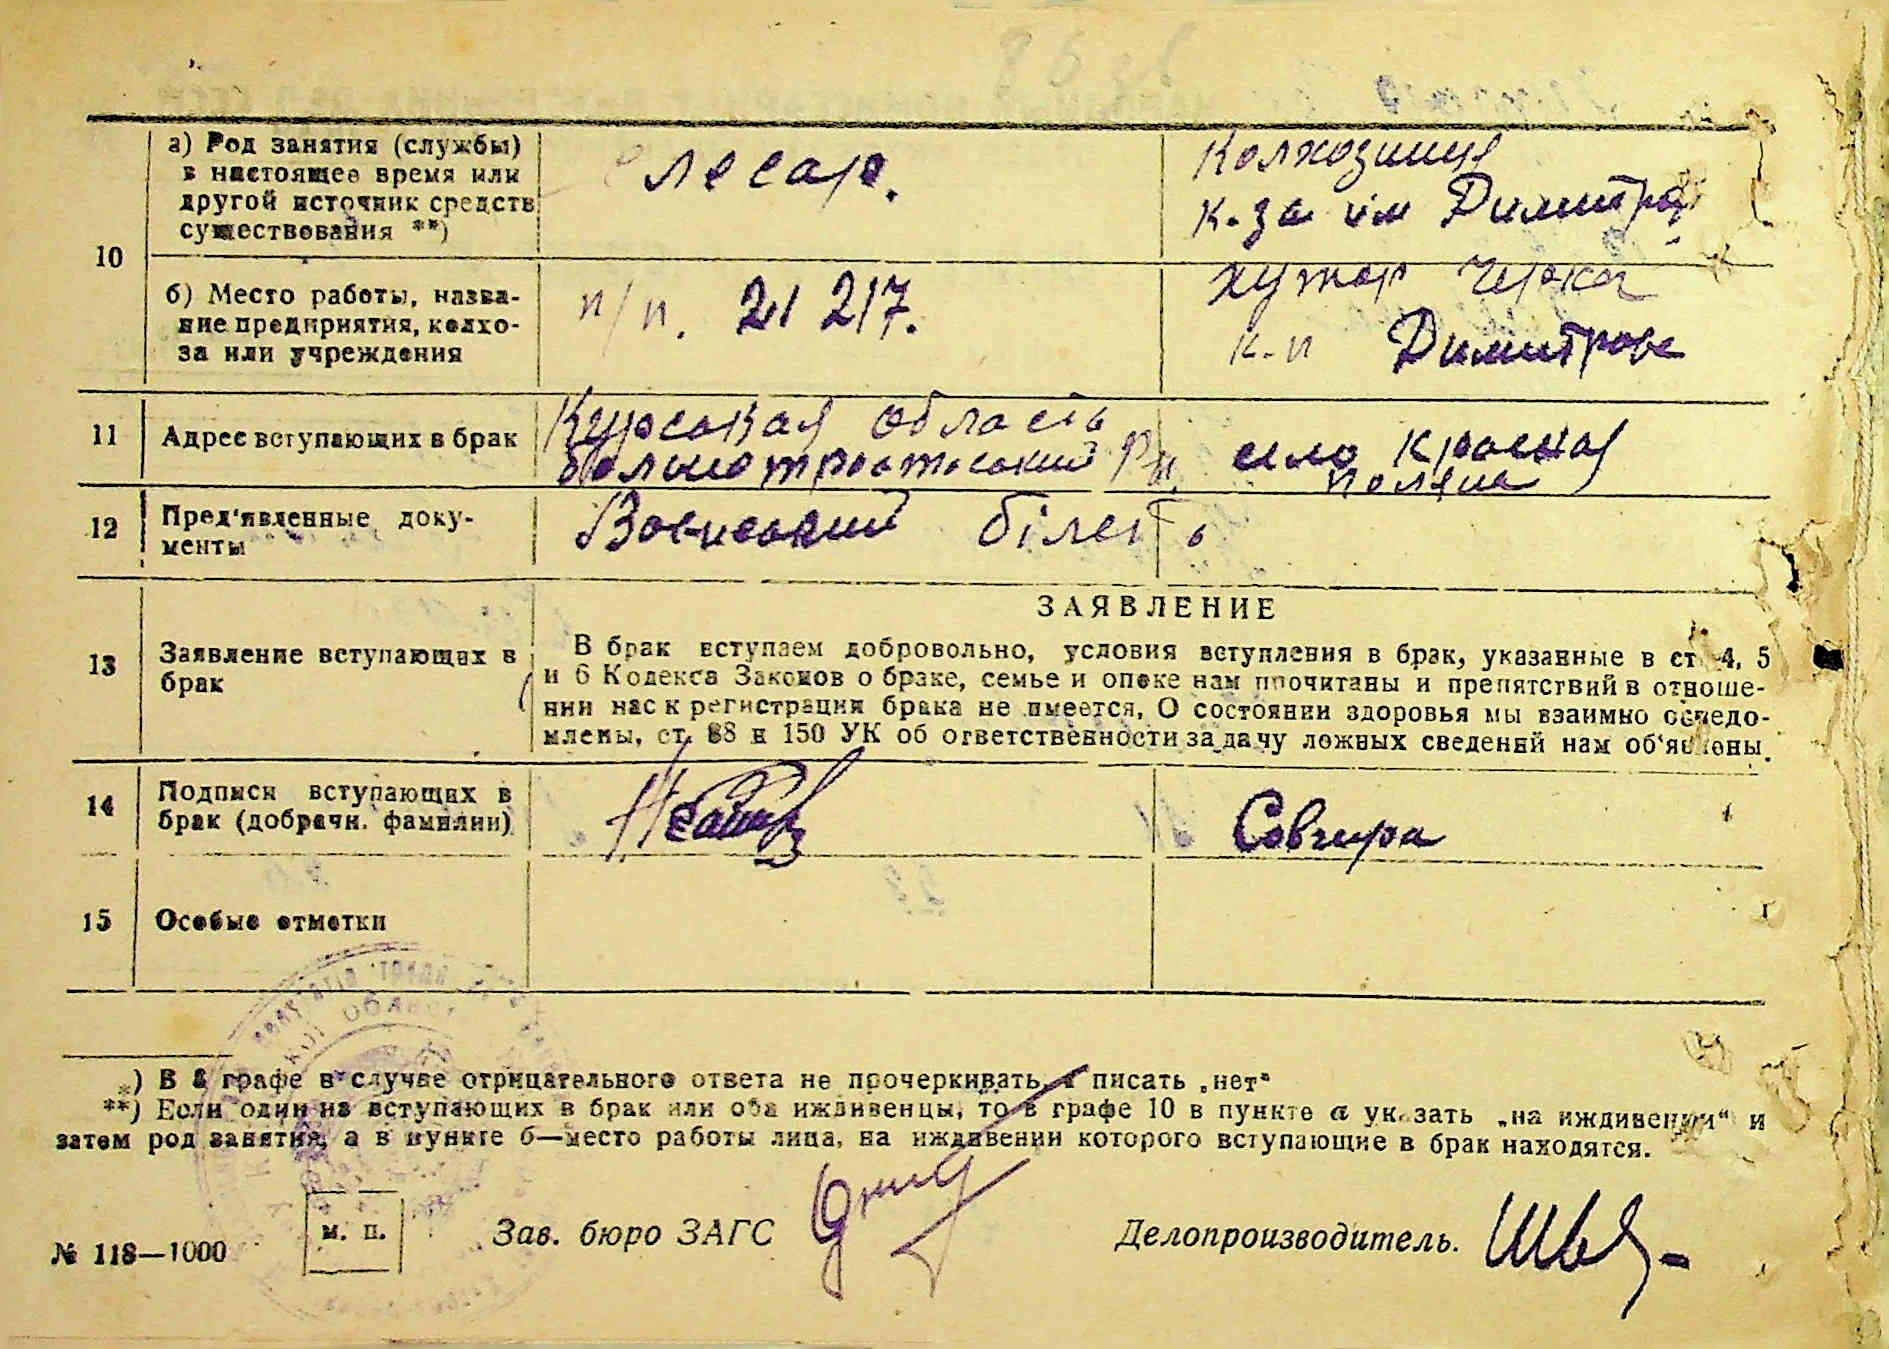 10
а) Род занятия (службы)
в настоящее время или
другой источник средств
существования **)
слесар.
Колхозниця
к-за ім Димитро
б) Место работы, назва-
ние предприятия, колхо-
за или учреждения
п/п. 21 217.
хутор
к-п Димитрова
11
Адрес вступающих в брак
Курсская область
Больщетроетеский Рн.
село Красная
Поляна
12
Пред'явленные доку-
менты
Воениский білеть
13
Заявление вступающих в
брак
ЗАЯВЛЕНИЕ
В брак вступаем добровольно, условия вступления в брак, указанные в ст. 4, 5
и 6 Кодекса Законов о браке, семье и опеке нам прочитаны и препятствий в отноше-
нии нас к регистрации брака не имеется. О состоянии здоровья мы взаимно осведо-
млены, ст. 88 и 150 УК об ответственности за дачу ложных сведений нам об'явлены.
14
Подписи вступающих в
брак (добрачн. фамилии)
Совгира
15
Особые отметки
*) В 8 графе в случае отрицательного ответа не прочеркивать, а писать „нет“
**) Если один из вступающих в брак или оба иждивенцы, то в графе 10 в пункте а указать „на иждивении“ и
затем род занятия, а в пункте б—место работы лица, на иждивении которого вступающие в брак находятся.
м. п.
Зав. бюро ЗАГС
Делопроизводитель.
№ 118—1000